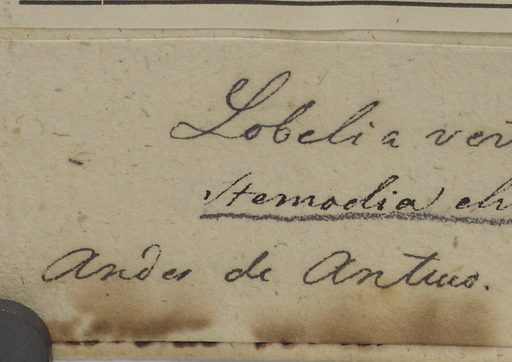 Lobelia ver
Stemodia ch
Andes de Antuco.